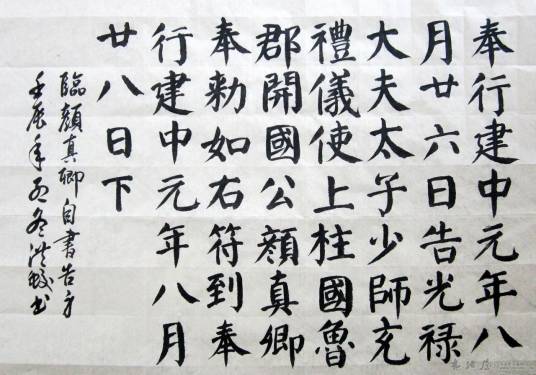 奉行建中元年八
月廿六日告光禄
大夫太子少師充
禮儀使上柱國魯
郡開國公顔真卿
奉勑如右符到奉
行建中元年八月
廿八日下
臨顔真卿自書告身
壬辰年孟冬洪蛟书